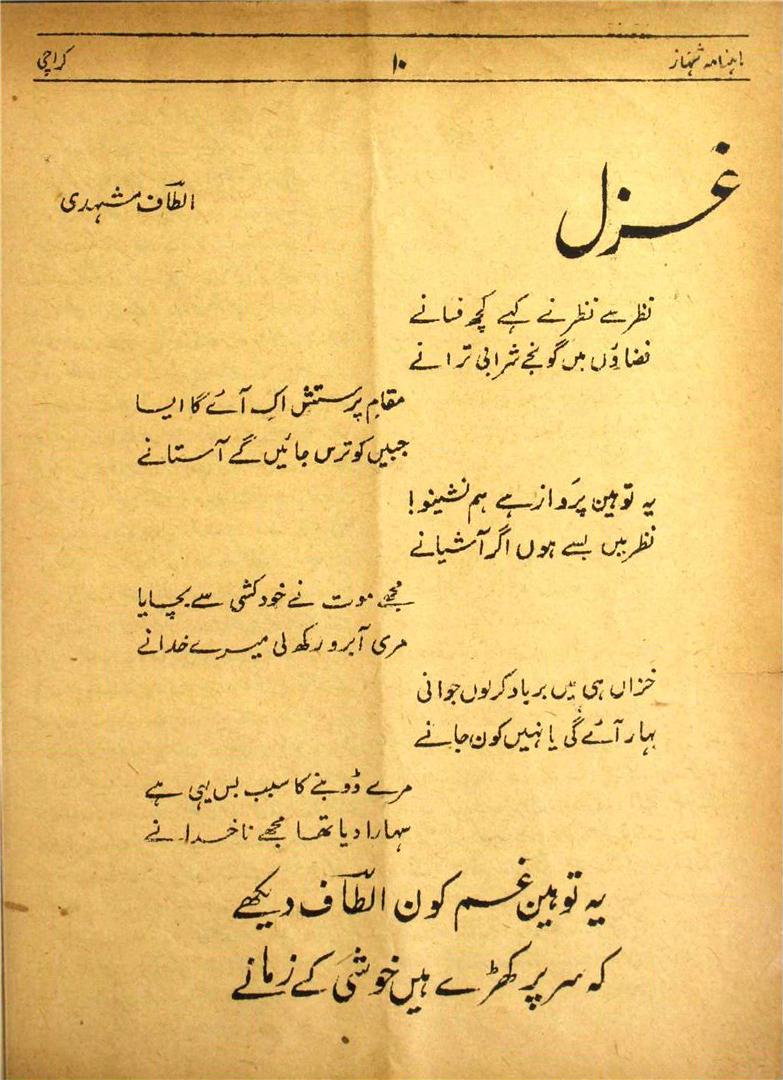 ماہنامہ شہناز ۱۰ کراچی
غزل
الطاف مشہدی
نظر سے نظر نے کہے کچھ فسانے
فضاؤں میں گونجے شرابی ترانے
مقامِ پرستش اک آئے گا ایسا
جبیں کو ترس جائیں گے آستانے
یہ توہین پرواز ہے ہم نشینو!
نظر میں بسے ہوں اگر آشیانے
مجھے موت نے خودکشی سے بچایا
مری آبرو رکھ لی میرے خدا نے
خزاں ہی میں برباد کر لوں جوانی
بہار آئے گی یا نہیں کون جانے
مرے ڈوبنے کا سبب بس یہی ہے
سہارا دیا تھا مجھے ناخدا نے
یہ توہین غم کون الطاف دیکھے
کہ سر پر کھڑے ہیں خوشی کے زمانے